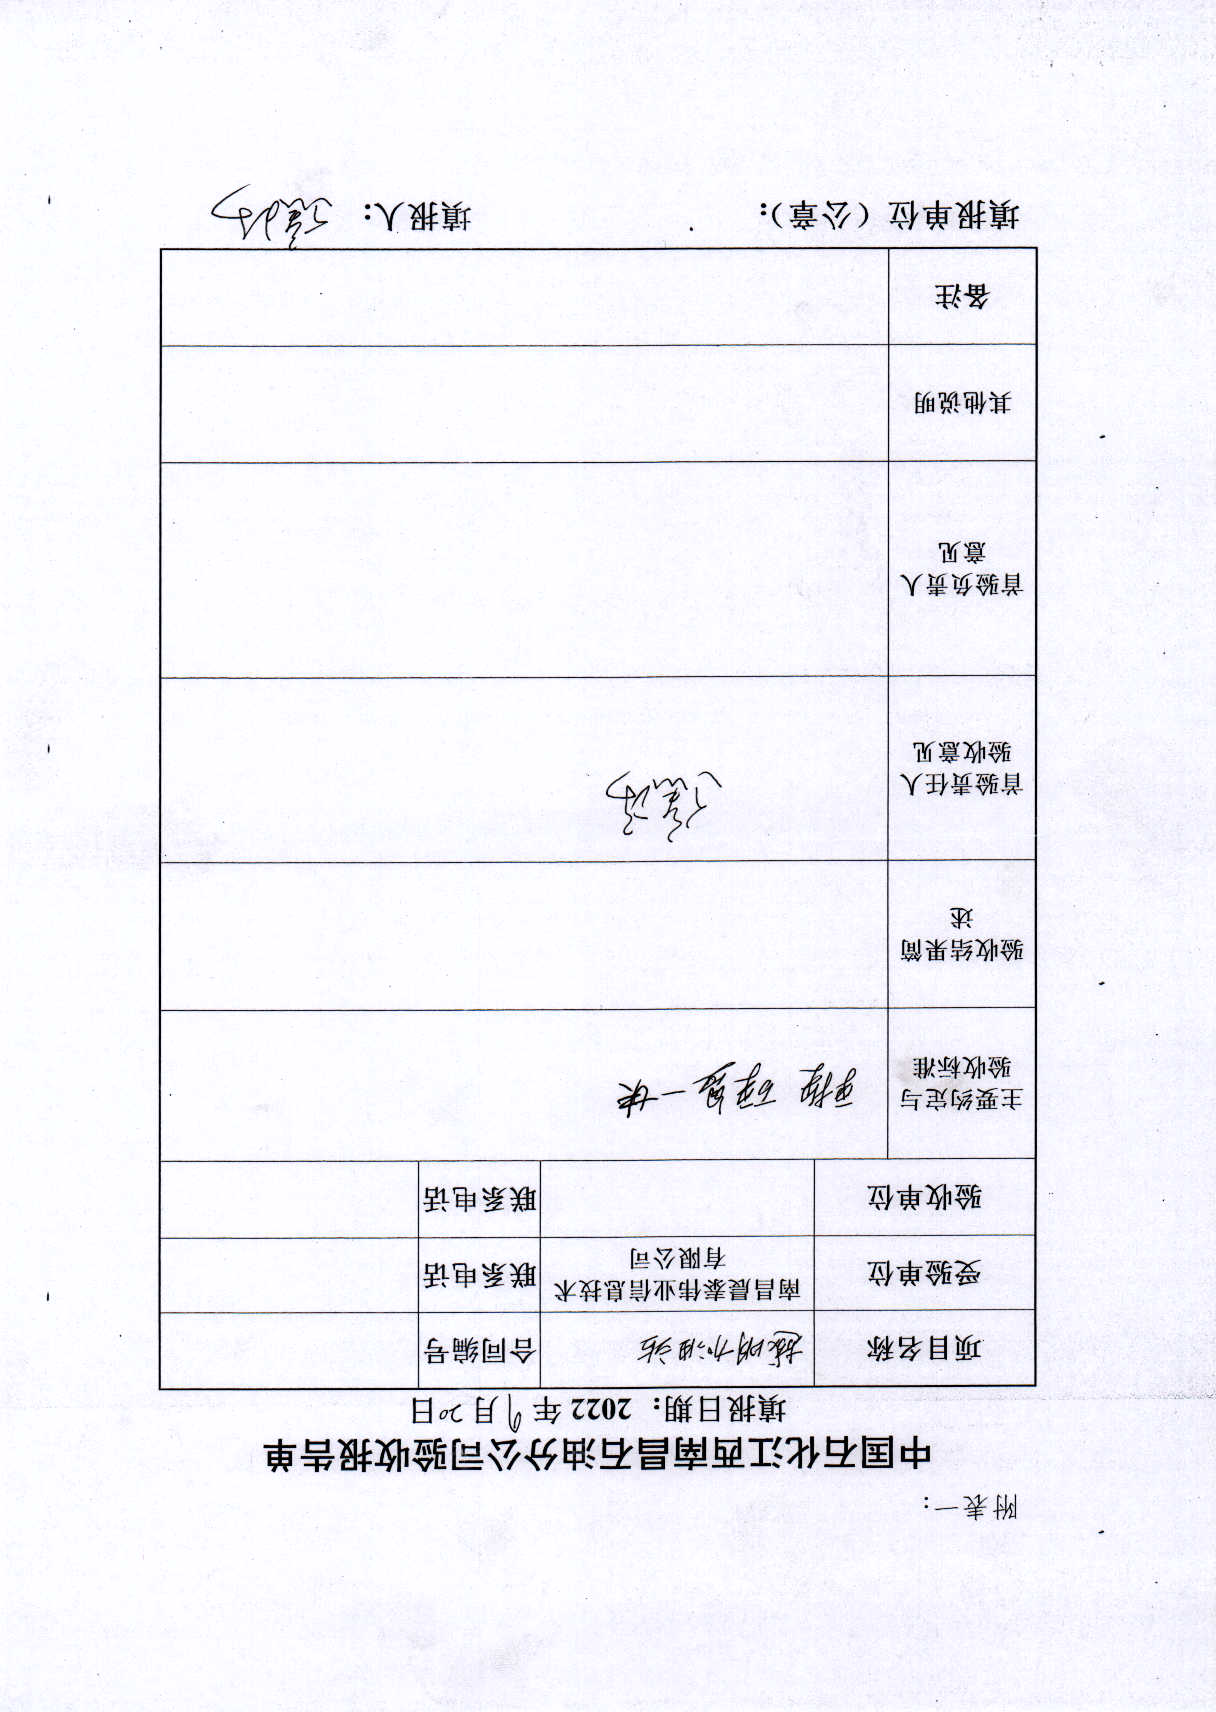 附表一：
中国石化江西南昌石油分公司验收报告单
填报日期：2022年9月20日
项目名称 加油站 合同编号
受验单位 南昌晨泰伟业信息技术有限公司 联系电话
验收单位 联系电话
主要约定与
验收标准 更换硬盘一块
验收结果简
述
首验责任人
验收意见
首验负责人
意见
其他说明
备注
填报单位（公章）： 填报人：